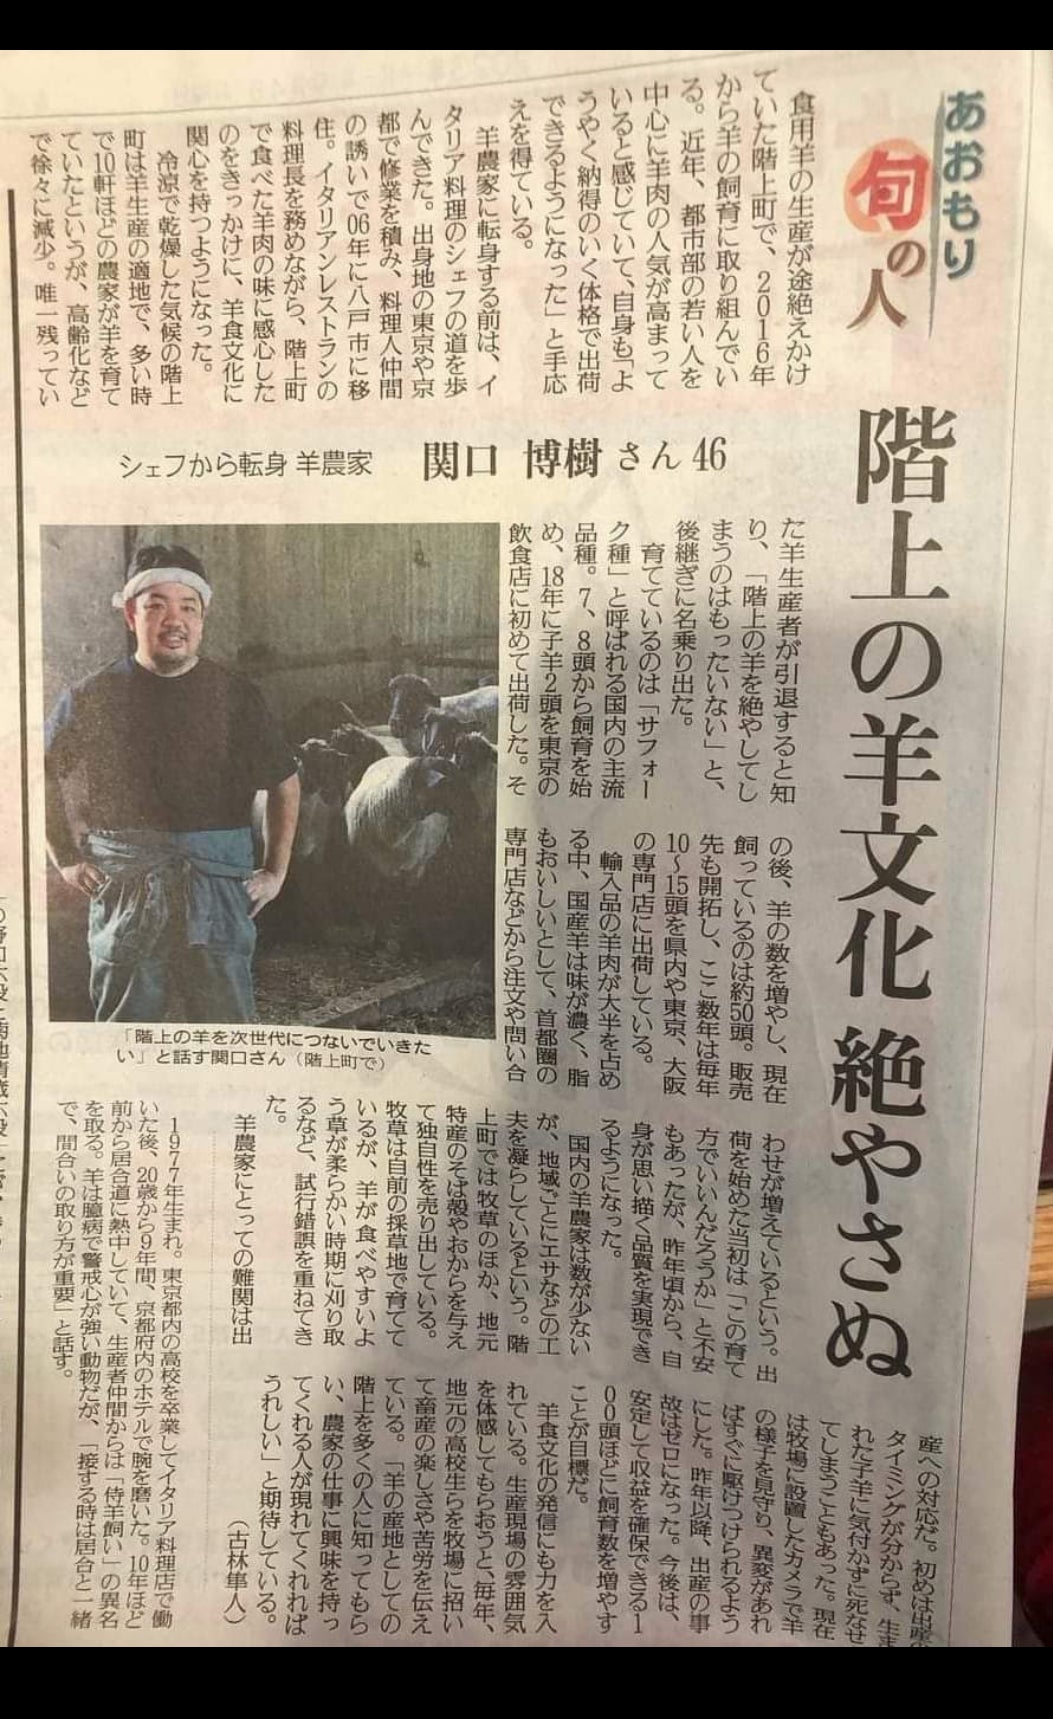 あおもり
旬の人
階上の羊文化 絶やさぬ
シェフから転身 羊農家 関口 博樹さん46
食用羊の生産が途絶えかけ
ていた階上町で、2016年
から羊の飼育に取り組んでい
る。近年、都市部の若い人を
中心に羊肉の人気が高まって
いると感じていて、自身も「よ
うやく納得のいく体格で出荷
できるようになった」と手応
えを得ている。
羊農家に転身する前は、イ
タリア料理のシェフの道を歩
んできた。出身地の東京や京
都で修業を積み、料理人仲間
の誘いで06年に八戸市に移
住。イタリアンレストランの
料理長を務めながら、階上町
で食べた羊肉の味に感心した
のをきっかけに、羊食文化に
関心を持つようになった。
冷涼で乾燥した気候の階上
町は羊生産の適地で、多い時
で10軒ほどの農家が羊を育て
ていたというが、高齢化など
で徐々に減少。唯一残ってい
た羊生産者が引退すると知
り、「階上の羊を絶やしてし
まうのはもったいない」と、
後継ぎに名乗り出た。
育てているのは「サフォー
ク種」と呼ばれる国内の主流
品種。7、8頭から飼育を始
め、18年に子羊2頭を東京の
飲食店に初めて出荷した。そ
の後、羊の数を増やし、現在
飼っているのは約50頭。販売
先も開拓し、ここ数年は毎年
10〜15頭を県内や東京、大阪
の専門店に出荷している。
輸入品の羊肉が大半を占め
る中、国産羊は味が濃く、脂
もおいしいとして、首都圏の
専門店などから注文や問い合
わせが増えているという。出
荷を始めた当初は「この育て
方でいいんだろうか」と不安
もあったが、昨年頃から、自
身が思い描く品質を実現でき
るようになった。
国内の羊農家は数が少ない
が、地域ごとにエサなどの工
夫を凝らしているという。階
上町では牧草のほか、地元
特産のそば殻やおからを与え
て独自性を売り出している。
牧草は自前の採草地で育てて
いるが、羊が食べやすいよ
う草が柔らかい時期に刈り取
るなど、試行錯誤を重ねてき
た。
羊農家にとっての難関は出
産への対応だ。初めは出産の
タイミングが分からず、生ま
れた子羊に気付かずに死なせ
てしまうこともあった。現在
は牧場に設置したカメラで羊
の様子を見守り、異変があれ
ばすぐに駆けつけられるよう
にした。昨年以降、出産の事
故はゼロになった。今後は、
安定して収益を確保できる1
00頭ほどに飼育数を増やす
ことが目標だ。
羊食文化の発信にも力を入
れている。生産現場の雰囲気
を体感してもらおうと、毎年、
地元の高校生らを牧場に招い
て畜産の楽しさや苦労を伝え
ている。「羊の産地としての
階上を多くの人に知ってもら
い、農家の仕事に興味を持っ
てくれる人が現れてくれれば
うれしい」と期待している。
（古林隼人）
「階上の羊を次世代につないでいきた
い」と話す関口さん（階上町で）
1977年生まれ。東京都内の高校を卒業してイタリア料理店で働
いた後、20歳から9年間、京都府内のホテルで腕を磨いた。10年ほど
前から居合道に熱中していて、生産者仲間からは「侍羊飼い」の異名
を取る。羊は臆病で警戒心が強い動物だが、「接する時は居合と一緒
で、間合いの取り方が重要」と話す。